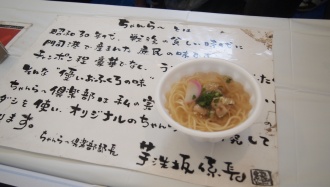 ちゃんらー とは
昭和30年代で、戦後の貧しい時代に
門司港で産まれた庶民の味です。
チャンポン程豪華でなく、う
そんな "優しいおふくろの味"
ちゃんらー倶楽部は私の実
ダシを使い、オリジナルのちゃん
ます。
ちゃんらー倶楽部部長
芋洗坂係長